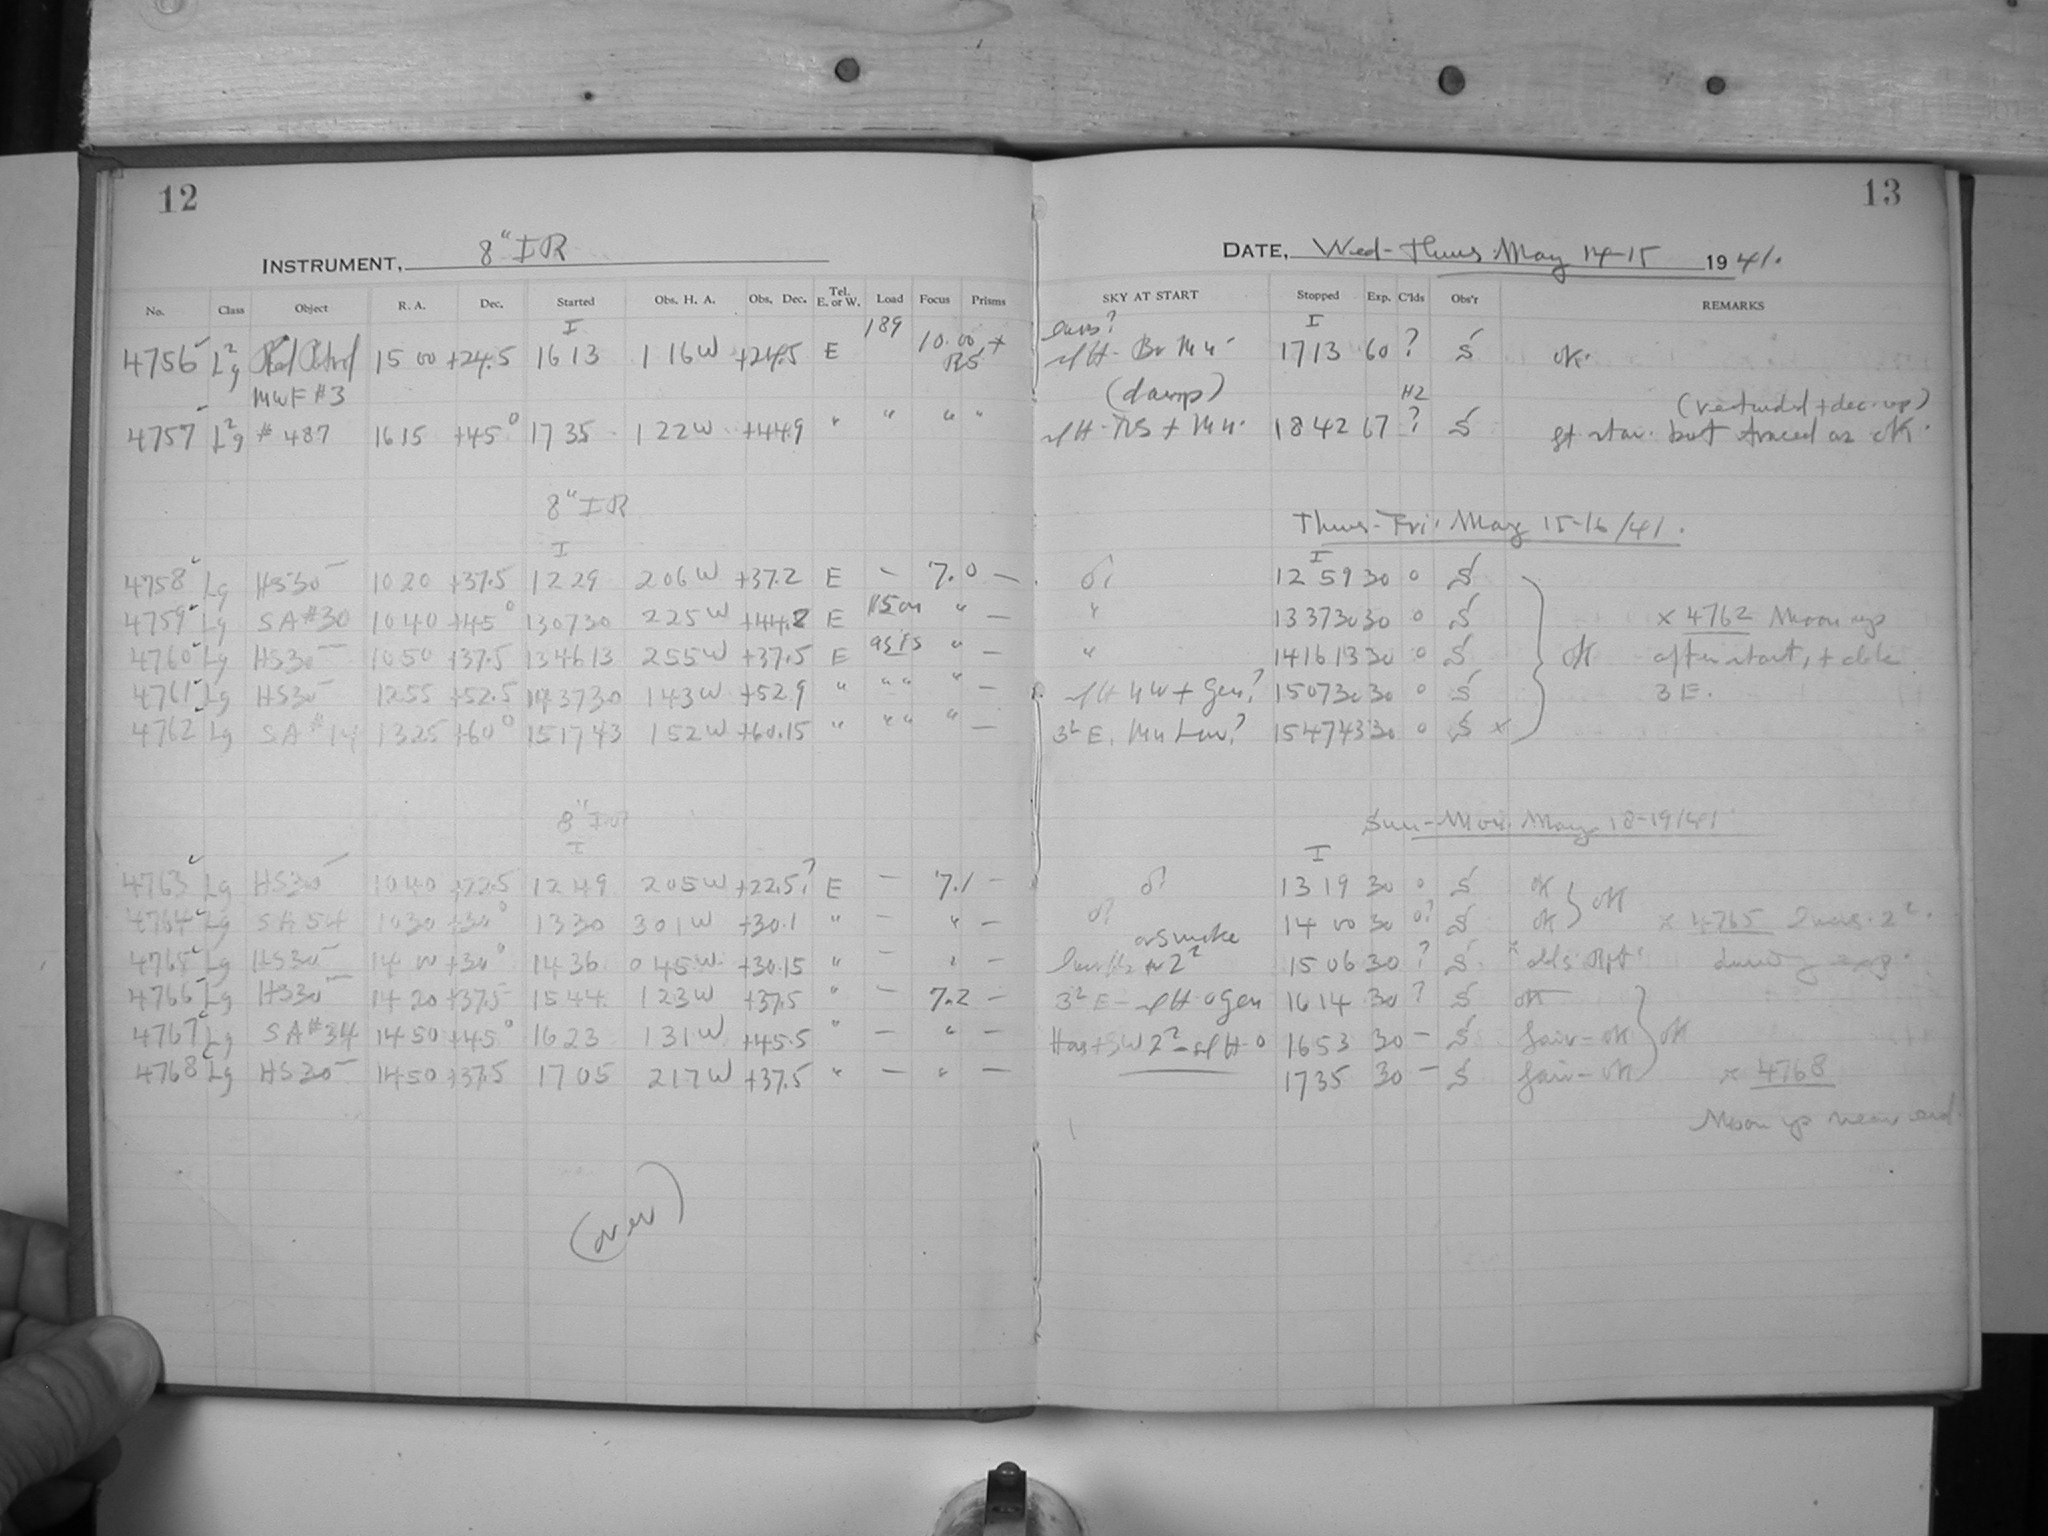 12
13
INSTRUMENT, 8" IR
DATE, Wed-Thurs May 14-15 1941.
No. Class Object R. A. Dec. Started Obs. H. A. Obs. Dec. Tel. E. or W. Load Focus Prisms SKY AT START Stopped Exp. C'lds Obs'r REMARKS
I 189 I
4756 L2g 15 00 +24.5 16 13 1 16 W +24.5 E 10.00 R5 17 13 60 ? S ok.
MWF #3 (damp) H2
4757 L2g # 487 16 15 +45° 17 35 1 22 W +44.9 " " " " 18 42 67 ? S
but traced as ok.
8" IR
Thurs-Fri. May 15-16/41.
I I
4758 Lg HS30 10 20 +37.5 12 29 2 06 W +37.2 E - 7.0 - 0? 12 59 30 0 S
4759 Lg SA #30 10 40 +45° 13 07 30 2 25 W +44.2 E " - " 13 37 30 30 0 S x 4762 Moon up
4760 Lg HS30 10 50 +37.5 13 46 13 2 55 W +37.5 E " - " 14 16 13 30 0 S ok after start, +
4761 Lg HS30 12 55 +52.5 14 37 30 1 43 W +52.9 " " " " - 15 07 30 30 0 S 3 E.
4762 Lg SA #14 13 25 +60° 15 17 43 1 52 W +60.15 " " " " - 15 47 43 30 0 S x
8" IR
Sun-Mon. May 18-19/41
I I
4763 Lg HS30 10 40 +22.5 12 49 2 05 W +22.5? E - 7.1 - 0? 13 19 30 0 S ok ok
4764 Lg SA 54 10 30 +30° 13 30 3 01 W +30.1 " - " - 0? 14 00 30 0? S ok x 4765
or smoke
4765 Lg HS30 14 00 +30° 14 36 0 45 W +30.15 " - " - 15 06 30 ? S during exp.
4766 Lg HS30 14 20 +37.5 15 44 1 23 W +37.5 " - 7.2 - 16 14 30 ? S ok
4767 Lg SA #34 14 50 +45° 16 23 1 31 W +45.5 " - " - 16 53 30 - S fair-ok ok
4768 Lg HS30 14 50 +37.5 17 05 2 17 W +37.5 " - " - 17 35 30 - S fair-ok x 4768
Moon up near end.
(over)